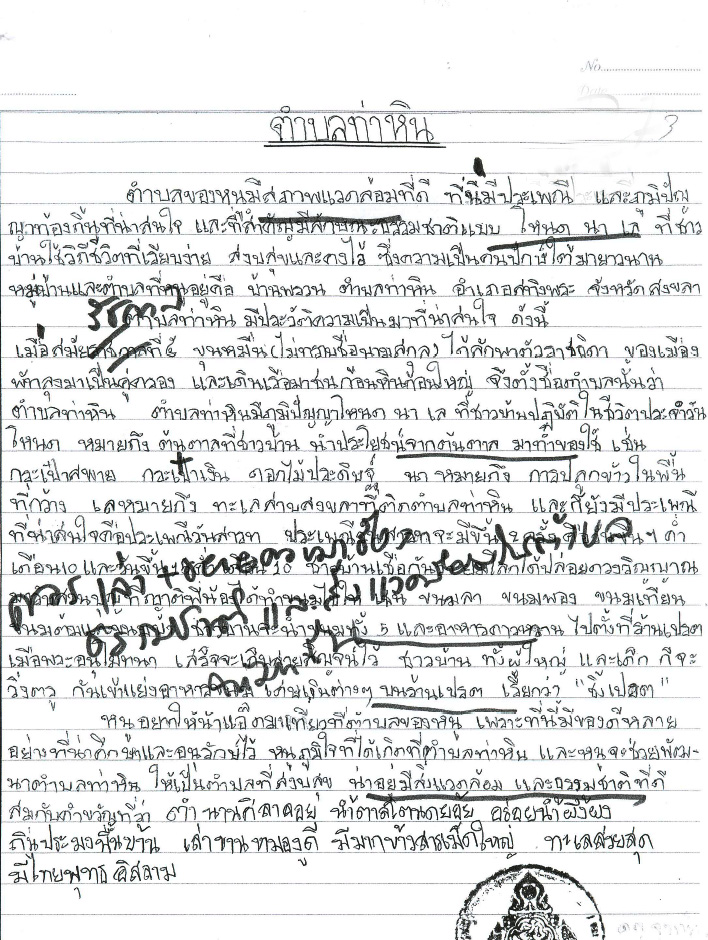 No.
Date
3
ตำบลท่าหิน
ตำบลของหนูมีสภาพแวดล้อมที่ดี ที่นี่มีประเพณี และภูมิปัญ
ญาท้องถิ่นที่น่าสนใจ และที่สำคัญมีลักษณะธรรมชาติแบบ โหนด นา เล ที่ชาว
บ้านใช้วิถีชีวิตที่เรียบง่าย สงบสุขและคงไว้ ซึ่งความเป็นคนปักษ์ใต้มายาวนาน
หมู่บ้านและตำบลที่หนูอยู่คือ บ้านพรวน ตำบลท่าหิน อำเภอสทิงพระ จังหวัดสงขลา
รัชกาล
ตำบลท่าหิน มีประวัติความเป็นมาที่น่าสนใจ ดังนี้
เมื่อสมัย ที่ ๕ ขุนหมื่น (ไม่ทราบชื่อนามสกุล) ได้ลักพาตัวราชธิดา ของเมือง
พัทลุงมาเป็นคู่ครอง และเดินเรือมาชนก้อนหินก้อนใหญ่ จึงตั้งชื่อตำบลนั้นว่า
ตำบลท่าหิน ตำบลท่าหินมีภูมิปัญญาโหนด นา เล ที่ชาวบ้านปฏิบัติในชีวิตประจำวัน
โหนด หมายถึง ต้นตาลที่ชาวบ้าน นำประโยชน์จากต้นตาล มาทำของใช้ เช่น
กระเป๋าสพาย กระเป๋าเงิน ดอกไม้ประดิษฐ์ นา หมายถึง การปลูกข้าวในพื้น
ที่กว้าง เลหมายถึง ทะเลสาบสงขลาที่ติดตำบลท่าหิน และก็ยังมีประเพณี
ที่น่าสนใจคือประเพณีวันสารท ประเพณี จะมีขึ้น 2 ครั้ง ค่ำ
เดือน10 และ 10 ชาวบ้านเชื่อกัน ได้ปลอยดวงวิญญาณ
ขนมลา ขนมพอง ขนมเทียน
ขนมต้ม จะนำขนมทั้ง 5 และอาหารคาวหวาน ไปตั้งที่ร้านเปรต
เมื่อพระอนุโมทนา เสร็จจะ ชาวบ้าน ทั้งผู้ใหญ่ และเด็ก ก็จะ
วิ่งตรู กันเข้าแย่งอาหาร เงินต่างๆ บนร้านเปรต เรียกว่า "ชิงเปรต"
หนูอยากให้น้าแอ๊ดมาเที่ยวที่ตำบลของหนู เพราะที่นี่มีของดีหลาย
อย่างที่น่าศึกษาและอนุรักษ์ไว้ หนูภูมิใจที่ได้เกิดที่ตำบลท่าหิน และหนูจะช่วยพัฒ-
นาตำบลท่าหิน ให้เป็นตำบลที่สงบสุข น่าอยู่มีสิ่งแวดล้อม และธรรมชาติที่ดี
สมกับคำขวัญที่ว่า ตำนานศิลาลอย น้ำตาลโตนดย้อย อร่อยน้ำผึ้งผง
ถิ่นประมงพื้นบ้าน เล่าขานหมองดี มีมากข้าวสารเม็ดใหญ่ ทะเลสวยสุด
มีไทยพุทธอิสลาม